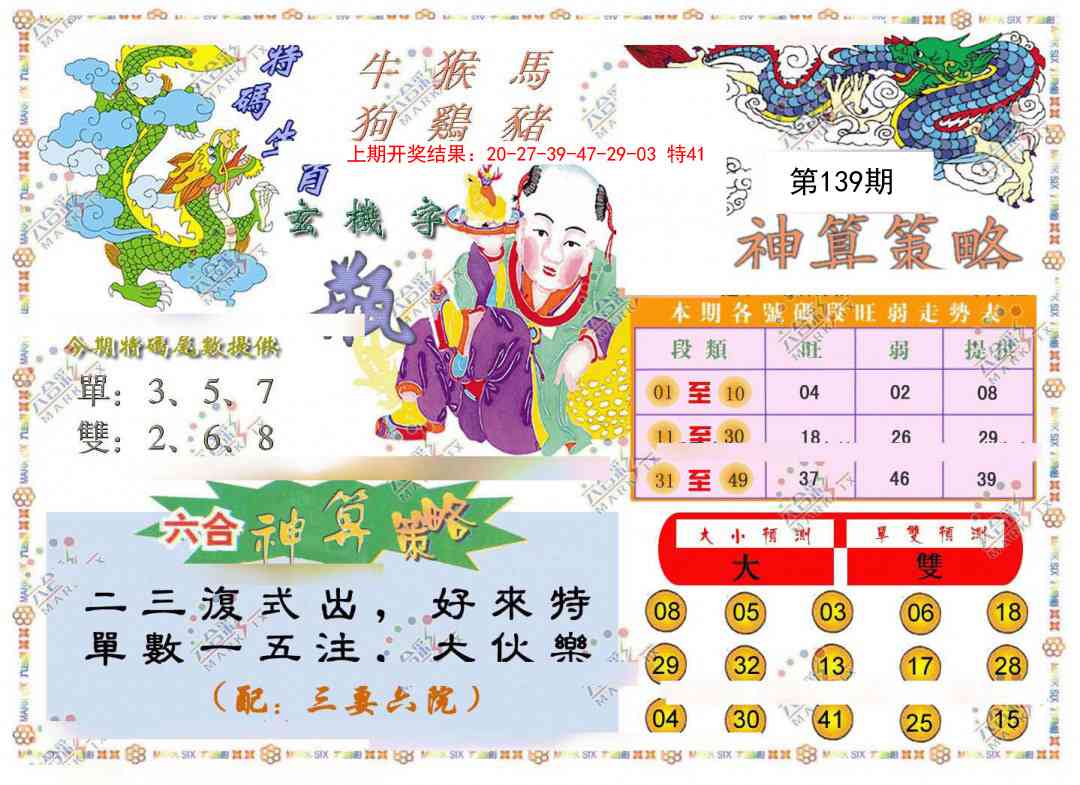 特碼生肖
牛 猴 馬
狗 鷄 豬
上期开奖结果：20-27-39-47-29-03 特41
第139期
玄機字
瓶
神算策略
今期特碼尾數提供
單：3、5、7
雙：2、6、8
本期各號碼段旺弱走勢表
段類 旺 弱 提供
01至10 04 02 08
11至30 18 26 29
31至49 37 46 39
六合神算策略
二三復式出，好來特
單數一五注．大伙樂
（配：三妻六院）
大小預測 單雙預測
大 雙
08 05 03 06 18
29 32 13 17 28
04 30 41 25 15